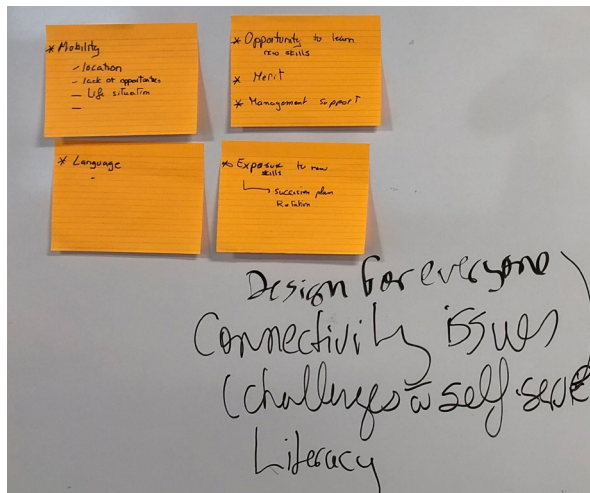 * Mobility
- location
- lack of opportunities
- Life situation
-
* Opportunity to learn
new skills
* Merit
* Management support
* Language
-
* Exposure to new
skills
succession plan
Rotation
Design for everyone
Connectivity issues
(challenges self serve
Literacy